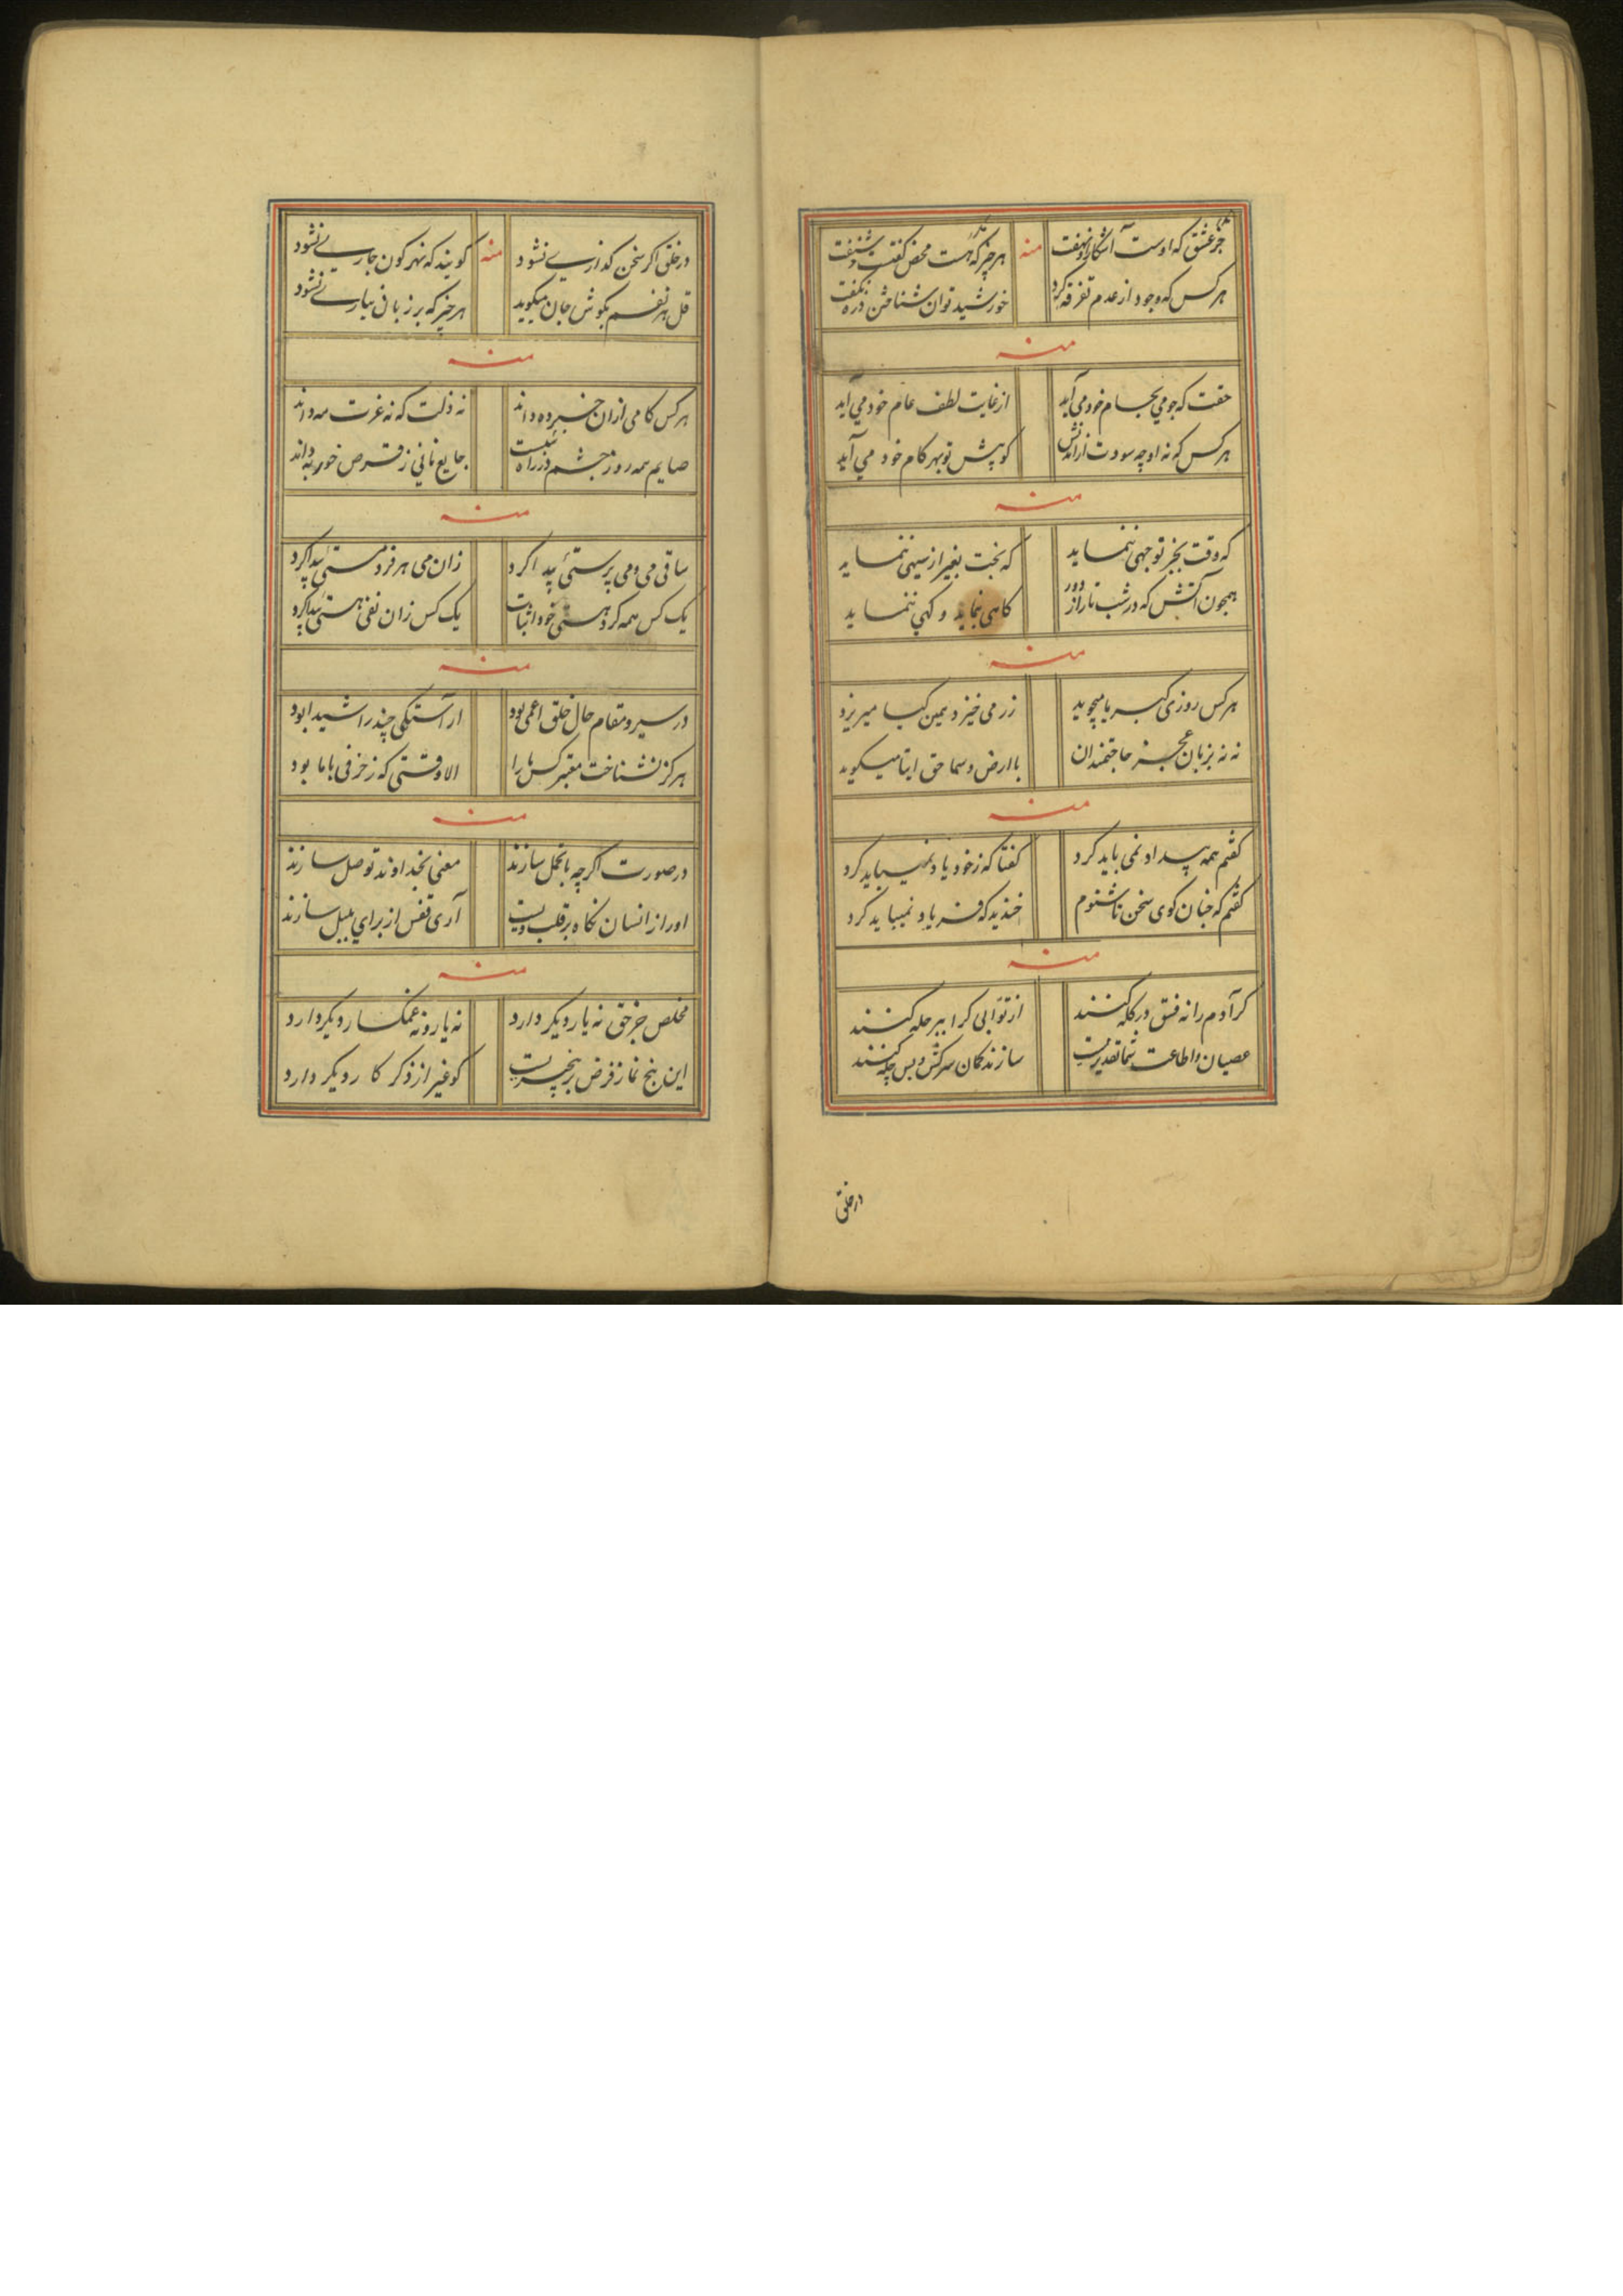 جز عشق که اوست آشکارا و نهفت منه هر چیز که هست محض گفتست و شنفت
هر کس که وجود از عدم تفرقه کرد خورشید توان شناختن ذره نگفت
منه
حقت که جو می بجام خود می آید از غایت لطف عام خود می آید
هر کس که نه او چه سودت از کو پیش تو بهر کام خود می آید
منه
که وقت بخیر توجهی ننماید که بخت بغیر از سیهی ننماید
همچون آتش که در شب تار از دور کاهی نماید و کهی ننماید
منه
هر کس روزی کبریا میجوید زر می خیزد یمین کیمیا میریزد
نه نه بزبان عجز حاجتمندان با ارض و سما حق ایتا میکوید
منه
کفتم همه بیداد نمی باید کرد کفتا که ز خود یاد نمیباید کرد
کفتم که جنان کوی سخن تا شنوم خندید که فریاد نمیباید کرد
منه
کر آدم را نه فسق در کله کنند از توابی کرا ببر حله کنند
عصیان و اطاعت شما تقدیریست سازندکان سرکش و بس چله کنند
در خلق
در خلق اکر سخن کذاری نشود منه کویند که نهر کون جاری نشود
قل هر نفسم بکوش جان میکوید هر چیز که بر زبان نیاری نشود
منه
هر کس کامی ازان خبر ده داند نه ذلت که نه عزت مه داند
صایم همه روز چشم در راه جایع نانی ز قرص خور به داند
منه
ساقی می و می پرستی پیدا کرد زان می هر فرد مستی پیدا کرد
یک کس همه کرد هستی خود اثبات یک کس زان نفی هستی پیدا کرد
منه
در سیر و مقام حال خلق اعمی بود ار آستکی چند را شیدا بود
هرکز نشناخت معتبر کس ما را الا وقتی که زخرفی با ما بود
منه
در صورت اکرچه با تجمل سازند معنی بخداوند توصل سازند
اورا از انسان نکاه بر قلب ویست آری قفس از برای بلبل سازند
منه
مخلص جز حق نه یار دیکر دارد نه یار و نه غمکسار دیکر دارد
این پنج نماز فرض بر بیخبریست کو غیر از ذکر کار دیکر دارد